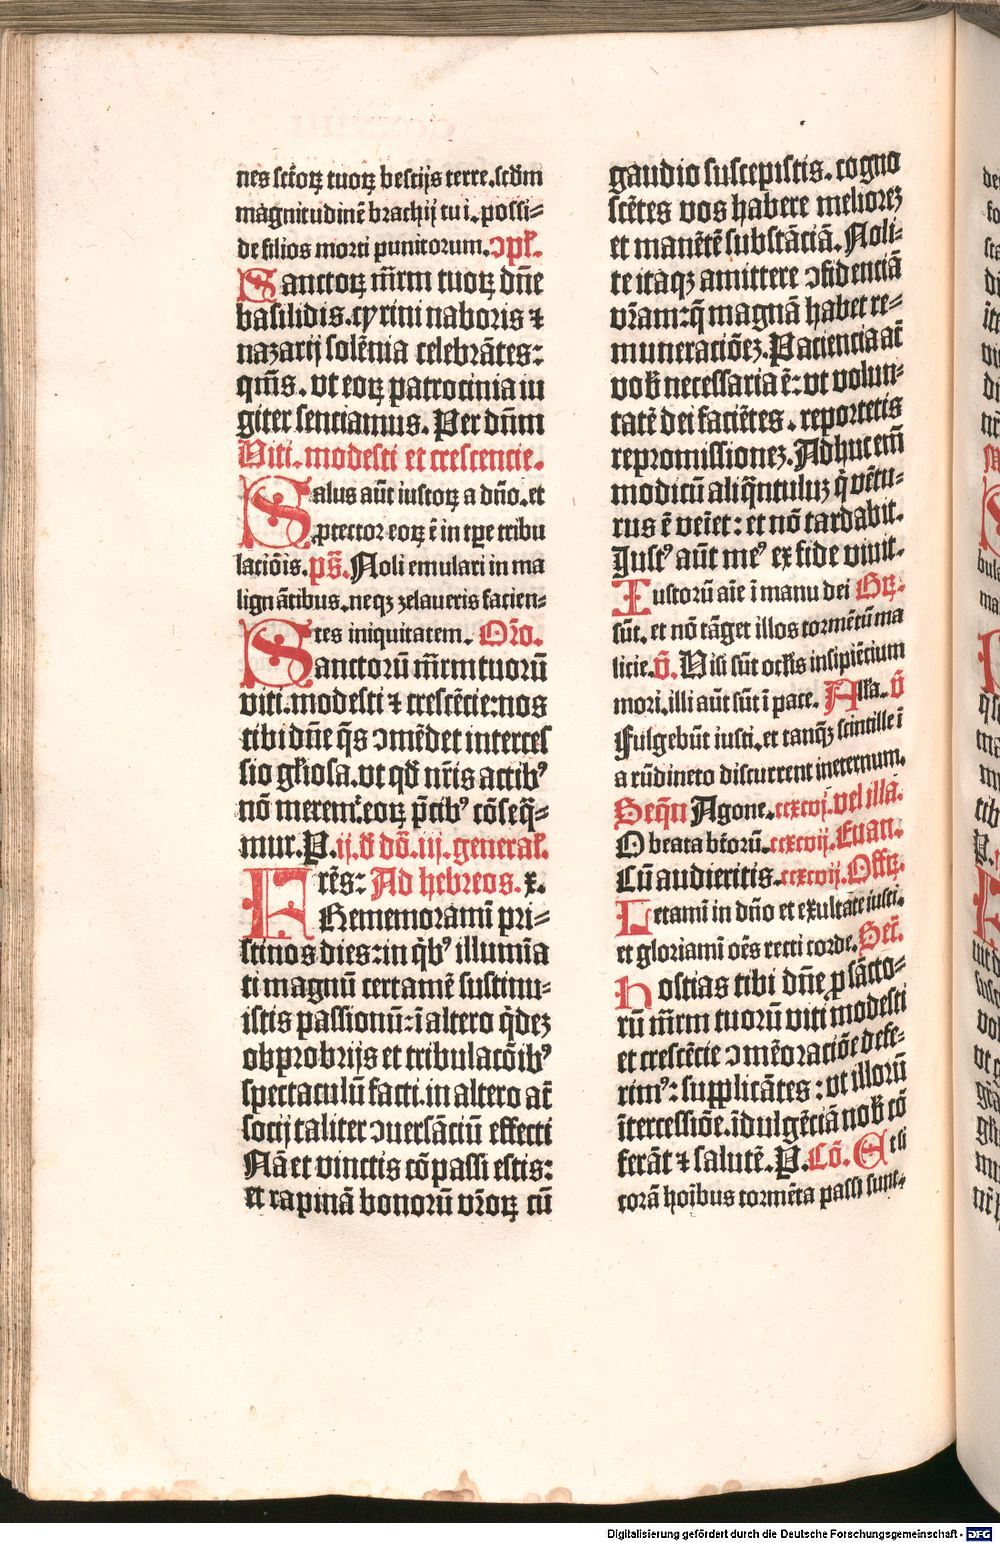 nes sctoꝝ tuoꝝ bestijs terre.scdm
magnitudinē brachij tui.possi-
de filios morti punitorum.ↄpl'.
Sanctoꝝ m̄rm tuoꝝ dn̄e
basilidis.cyrini naboris ⁊
nazarij solēnia celebrātes:
qm̄s. vt eoꝝ patrocinia iu
giter senciamus. Per dn̄m
Viti. modesti et crescencie.
Salus aūt iustoꝝ a dn̄o.et
ꝓtector eoꝝ ē in tꝑe tribu
lacōis.ps̄. Noli emulari in ma
lignātibus.neqꝫ zelaueris facien-
tes iniquitatem. Or̄o.
Sanctorū m̄rm tuorū
viti.modesti ⁊ crescēcie:nos
tibi dn̄e q̄s ↄmēdet interces
sio gl'iosa.vt qd̄ nr̄is actibꝰ
nō merem̄.eoꝝ p̄cibꝰ cōseq̄-
mur. P. ij. d' dō. iij. general'.
Frēs: Ad hebreos. x.
Rememoramī pri-
stinos dies:in qb'ꝰ illumīa
ti magnū certamē sustinu-
istis passionū:ī altero q̄dez
obprobrijs et tribulacōibꝰ
spectaculū facti.in altero at̄
socij taliter ↄuersāciū effecti
Nā et vinctis cōpassi estis:
et rapinā bonorū vr̄oꝝ cū
gaudio suscepistis. cogno
scētes vos habere meliorez
et manētē substāciā. Noli-
te itaqꝫ amittere ↄfidenciā
vr̄am:q̄ magnā habet re-
muneraciōez. Paciencia at̄
vob' necessaria ē:vt volun-
tatē dei faciētes. reportetis
repromissionez. Adhuc em̄
modicū aliq̄ntuluz q̇ vētu-
rus ē veīet:et nō tardabit.
Justꝰ aūt meꝰ ex fide viuit.
Iustorū aīe ī manu dei Gꝝ.
sūt. et nō tāget illos tormētū ma
licie. v̄. Visi sūt oclis insipiēcium
mori.illi aūt sūt ī pace. Alla. v̄
Fulgebūt iusti.et tanq̄ꝫ scintille ī
arūdineto discurrent ineternum.
Seq̄n Agone.ccxcvj.vel illa.
O beata bt̄orū.ccxcvij. Euan.
Cū audieritis.ccxcvij. Offꝝ.
Letamī in dn̄o et exultāte iusti.
et gloriamī oēs recti corde. Secr̄.
Hostias tibi dn̄e ꝓ sācto-
rū m̄rm tuorū viti modesti
et crescēcie ↄmēoraciōe defe-
rimꝰ:supplicātes:vt illorū
ītercessiōe.īdulgēciā nob' cō
ferāt ⁊ salutē. P. Cō. Et si
corā hoībus tormēta passi sunt-
Digitalisierung gefördert durch die Deutsche Forschungsgemeinschaft - DFG